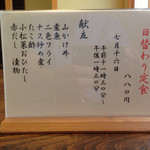 日替わり定食
八八〇円
七月十六日
午前十一時三〇分〜
午後一時三〇分
献立
山かけ丼
煮魚
二色フライ
ナス炒め煮
たこ酢
小松菜おひたし
赤だし 漬物